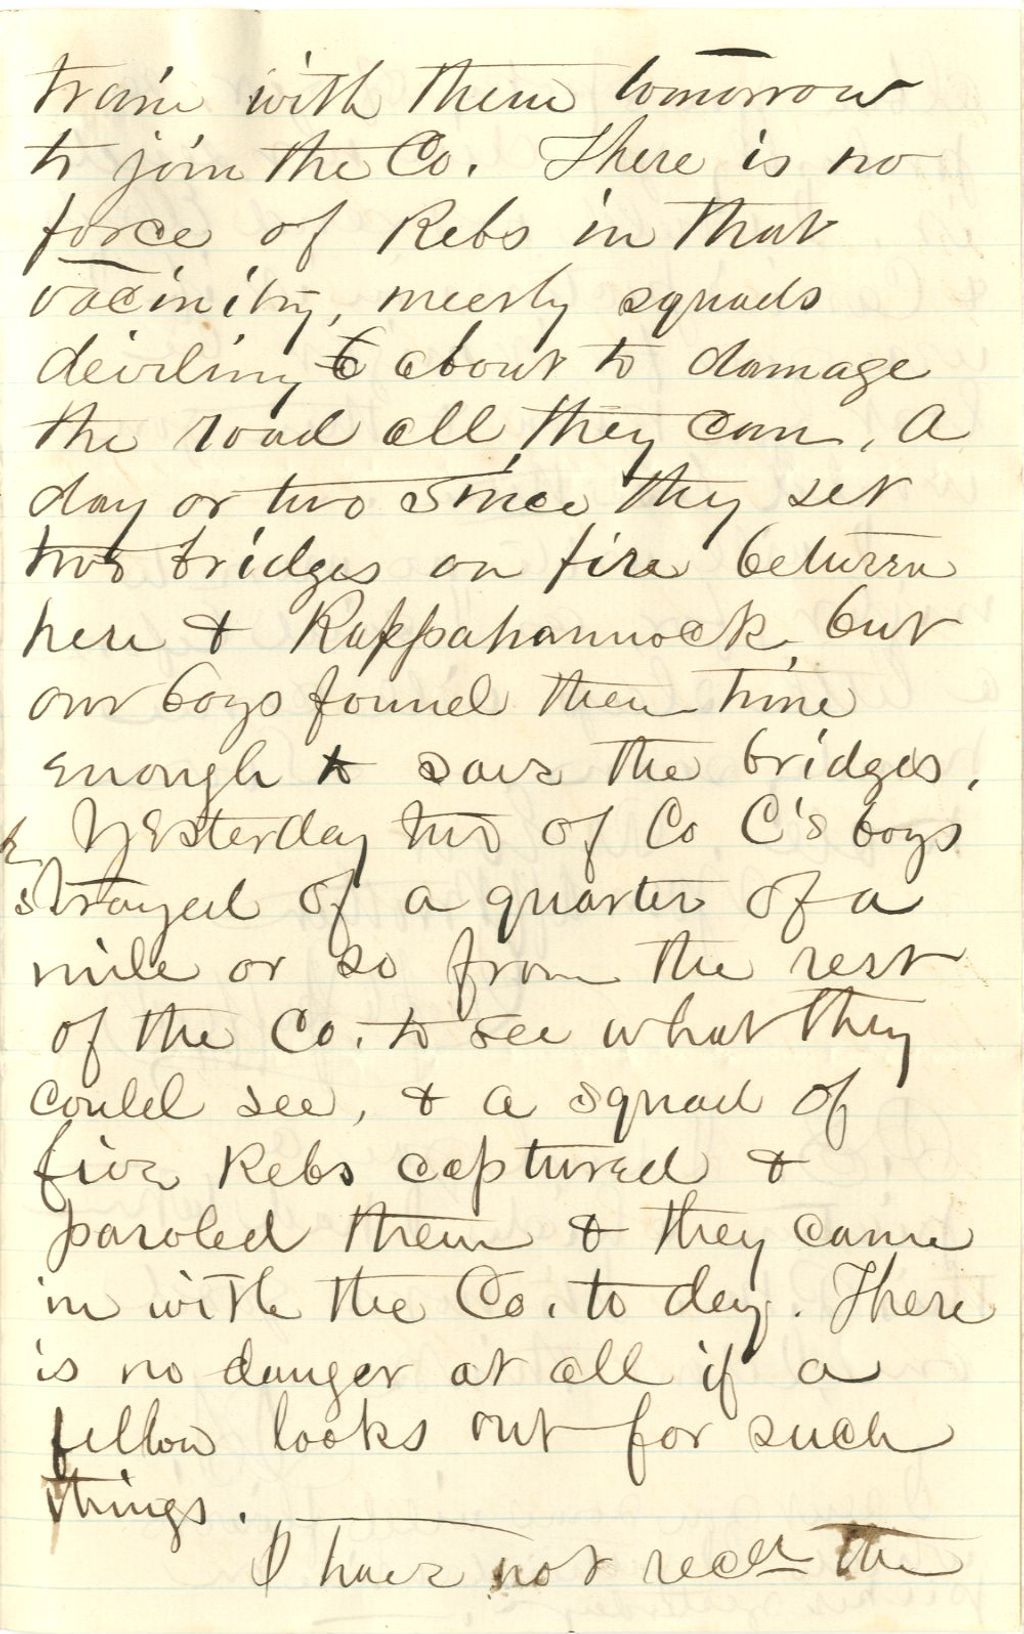 train with them tomorrow
to join the Co. There is no
force of Rebs in that
vacinity, meerly squads
deviling about to damage
the road all they can. A
day or two since they set
two bridges on fire between
here & Rappahannock, but
our boys found them time
enough to save the bridges.
Yesterday two of Co C's boys
strayed of a quarter of a
mile or so from the rest
of the Co. to see what they
could see, & a squad of
five Rebs captured &
paroled them & they came
in with the Co. to day. There
is no danger at all if a
fellow looks out for such
things.
I have not recd the